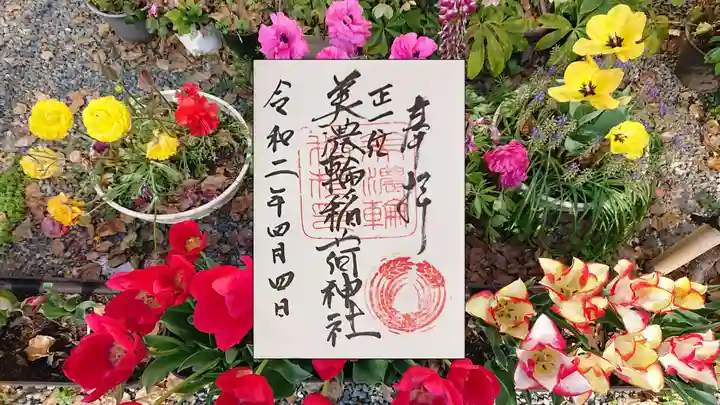 奉拝
正一位
美濃輪稲荷神社
令和二年四月四日